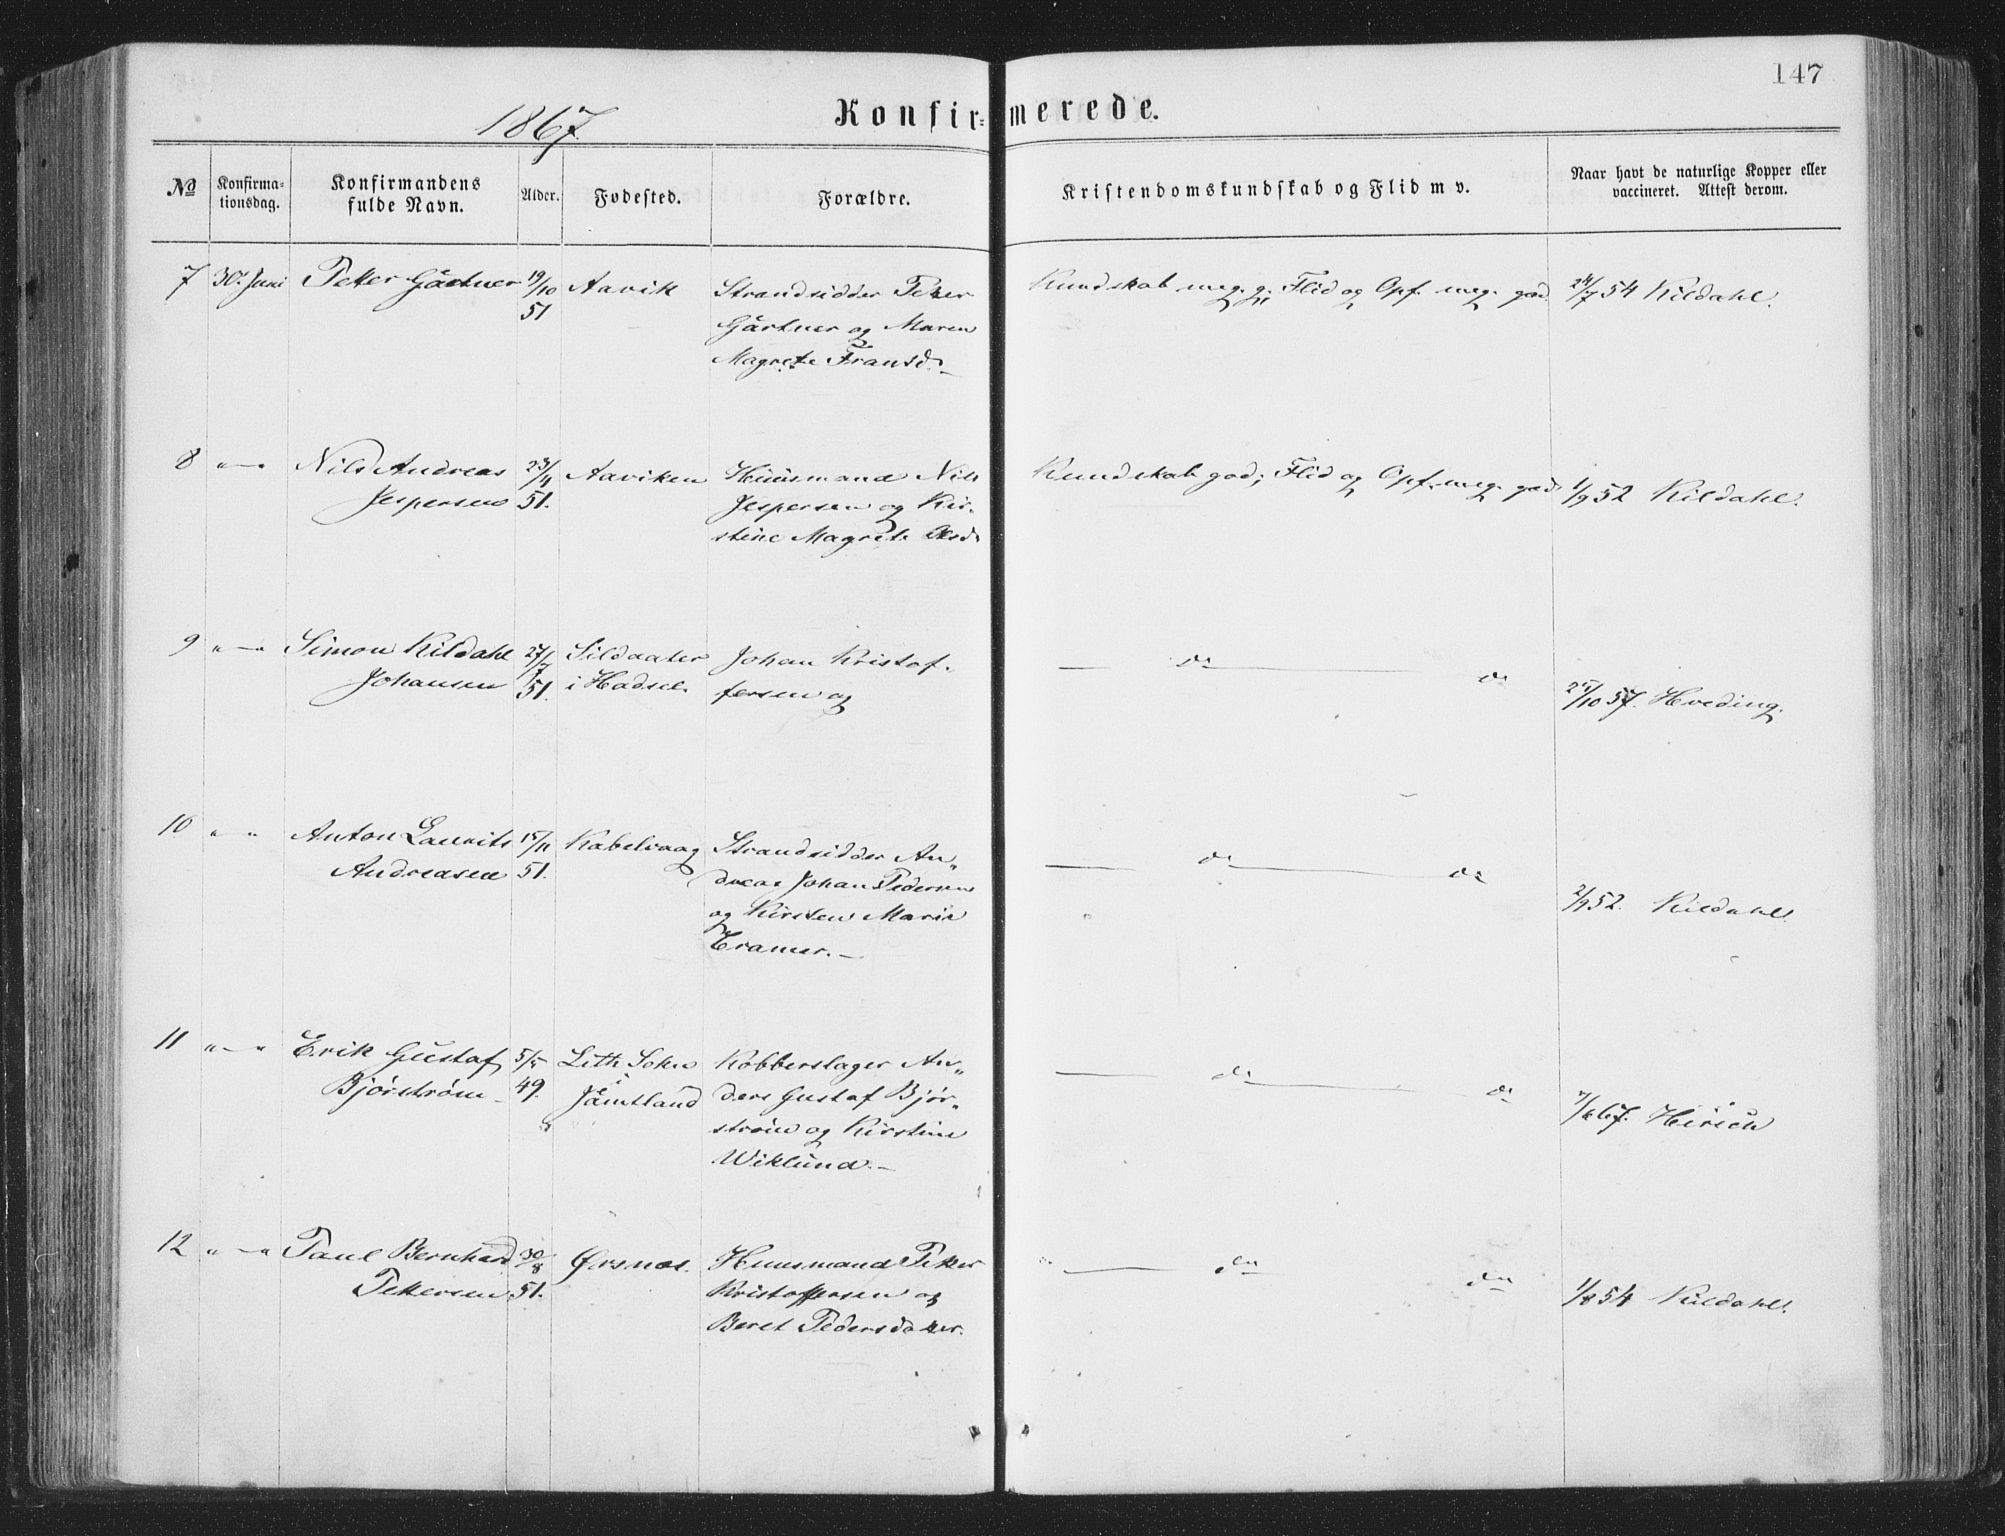 147
1867.
Konfirmerede.
No
Konfirmationsdag.
Konfirmandens fulde Navn.
Alder.
Fødested.
Forældre.
Kristendomskundskab og Flid m v.
Naar havt de naturlige Kopper eller vaccineret. Attest derom.
7 30te Juni Petter Gärtner 19/10 Aavik Strandsidder Peter Kundskab meg. g., Flid og Opf. meg. god 24/7 54 Kildahl.
51 Gärtner og Maren
Magrete Fransd. –
8 " — " Nils Andreas 23/11 Aaviken Huusmand Nils Kundskab god; Flid og Opf. meg. god 1/9 52 Kildahl.
Jespersen 51. Jespersen og Kir-
stine Magrete Olsd.
9 " — " Simon Kildahl 27/7 Sildaater Johan Kristof- — do — do
Johansen 51. i Hadsel. fersen og 25/10 57. Hveding.
10 " " Anton Laurits 15/11 Kabelvaag Strandsidder An„ — do — do
Andreasen 51. dreas Johan Pedersen
og Kirsten Marie 2/9 52. Kildahl.
Cramer. –
11 " – " Erik Gustaf 5/5 Lith Sokn Kobberslager An„ — do — do
Bjørstrøm – 49. i Jämtland ders Gustaf Bjør„
strøm og Kirstine 7/6 67. Hirsch
Wiklund. –
12 " — " Paul Bernhard 30/8 Ørsnes. Huusmand Peter — do do
Pettersen 51. Kristoffersen og 1/8 54 Kildahl.
Beret Pedersdatter.